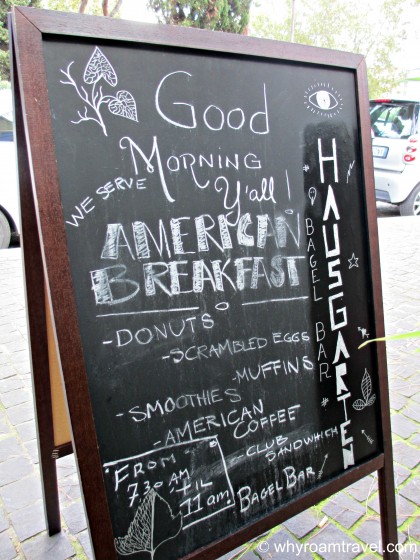 Good
Morning
Y'all!
WE SERVE
AMERICAN
BREAKFAST
- DONUTS
- SCRAMBLED EGGS
- MUFFINS
- SMOOTHIES
- AMERICAN
COFFEE
- CLUB
SANDWHICH
BAGEL BAR!
FROM
7.30 AM
'TIL
11am
HAUSGARTEN
BAGEL BAR
© whyroamtravel.com